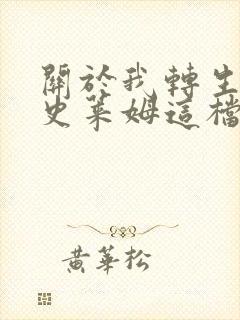 關於我轉生
史萊姆這檔
黃華松